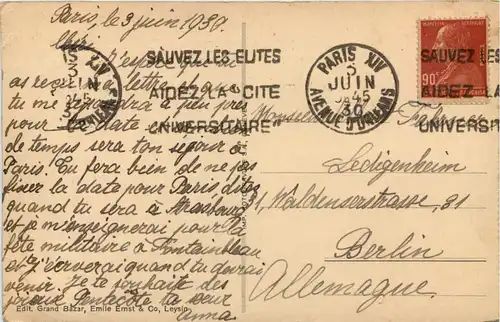 Paris, le 3 juin 1930.
as reçu ma lettre et que
tu me répondras à peu près
pour date
de temps sera ton séjour à
Paris. Tu fera bien de ne pas
fixer la date pour Paris
quand tu sera à Strasbourg
et je m'
fête militaire à Fontainebleau
et t'écrverai quand tu devrai
venir. Je te souhaite des
joyeux Pentecôte ta sœur
Anna
Edit. Grand Bazar, Emile Ernst & Co, Leysin
SAUVEZ LES ELITES
AIDEZ LA "CITE
UNIVERSITAIRE"
PARIS XIV
3
JUIN
30
AVENUE D'ORLEANS
SAUVEZ LES
AIDEZ LA
UNIVERSIT
90c
Monsieur
Ledigenheim
31, Waldenserstrasse, 31
Berlin
Allemagne.